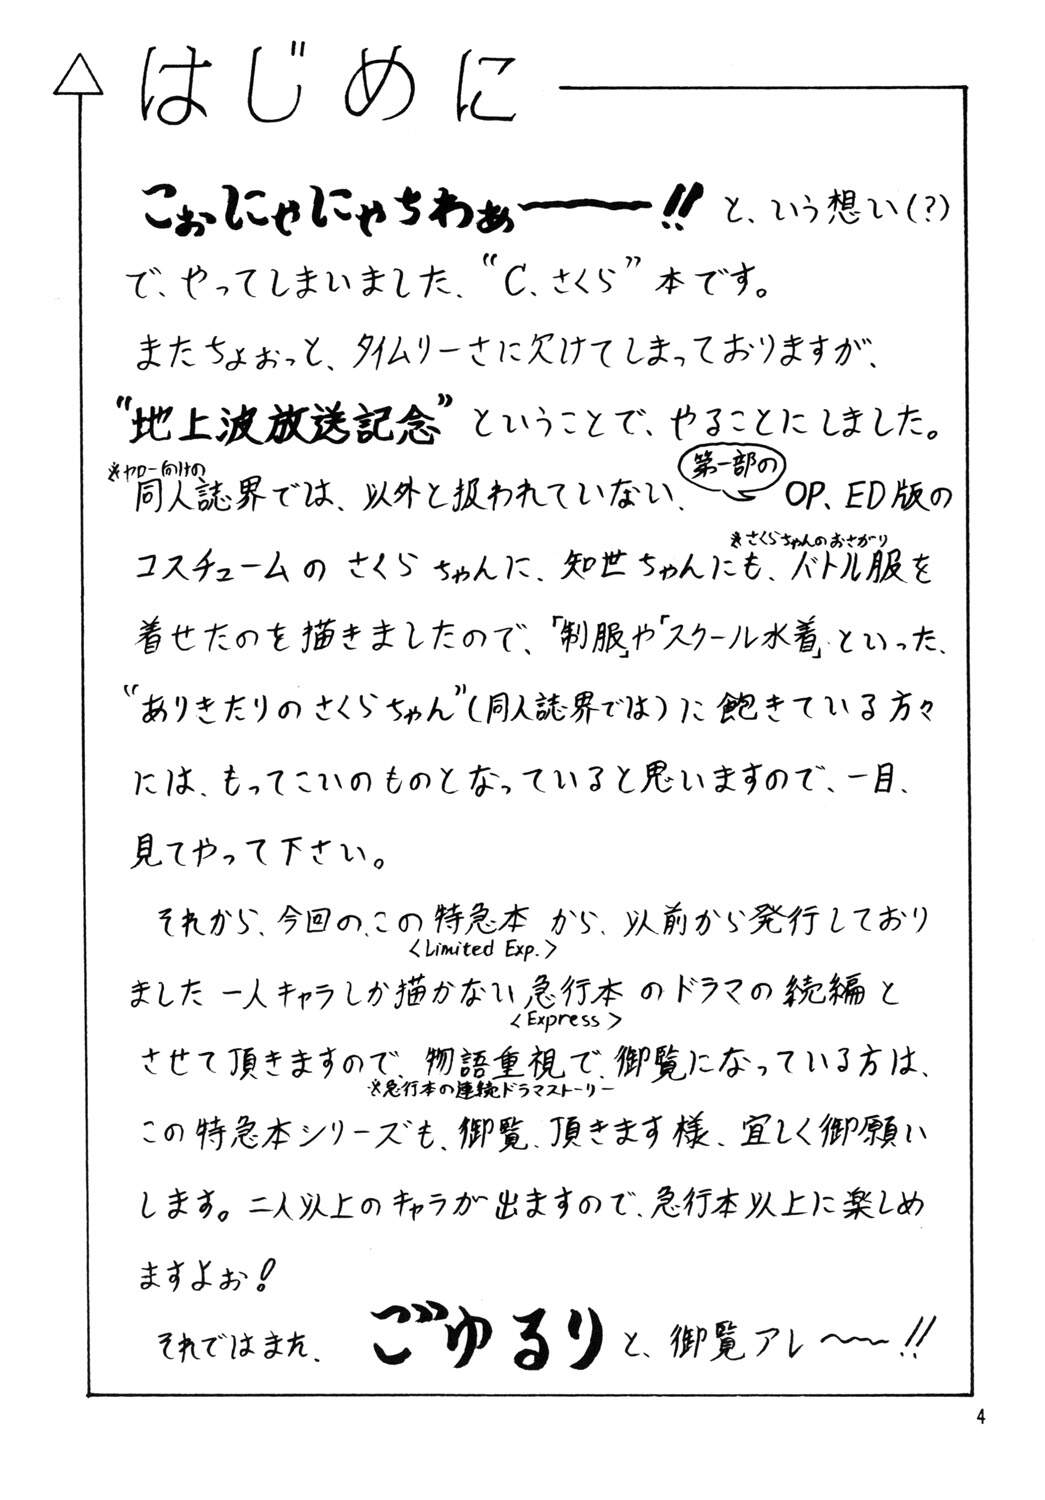 はじめに
こぉにゃにゃちわぁーー!! と、いう想い(?)
で、やってしまいました、“C、さくら”本です。
またちょぉっと、タイムリーさに欠けてしまっておりますが、
“地上波放送記念”ということで、やることにしました。
※ヤロー向けの
第一部の
同人誌界では、以外と扱われていない、OP、ED版の
※さくらちゃんのおさがり
コスチュームのさくらちゃんに、知世ちゃんにも、バトル服を
着せたのを描きましたので、「制服」や「スクール水着」といった、
“ありきたりのさくらちゃん”(同人誌界では)に飽きている方々
には、もってこいのものとなっていると思いますので、一目、
見てやって下さい。
それから、今回の、この特急本から、以前から発行しており
<Limited Exp.>
ました一人キャラしか描かない急行本のドラマの続編と
<Express>
させて頂きますので、物語重視で、御覧になっている方は、
※急行本の連続ドラマストーリー
この特急本シリーズも、御覧、頂きます様、宜しく御願い
します。二人以上のキャラが出ますので、急行本以上に楽しめ
ますよぉ!
それではまた、ごゆるりと、御覧アレ〜〜!!
4